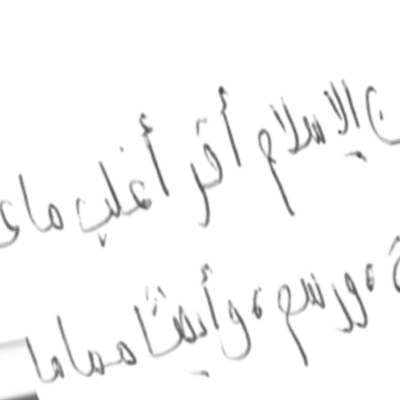 الإسلام أقر أغلب ما
، ورسم، وأيضًا مما